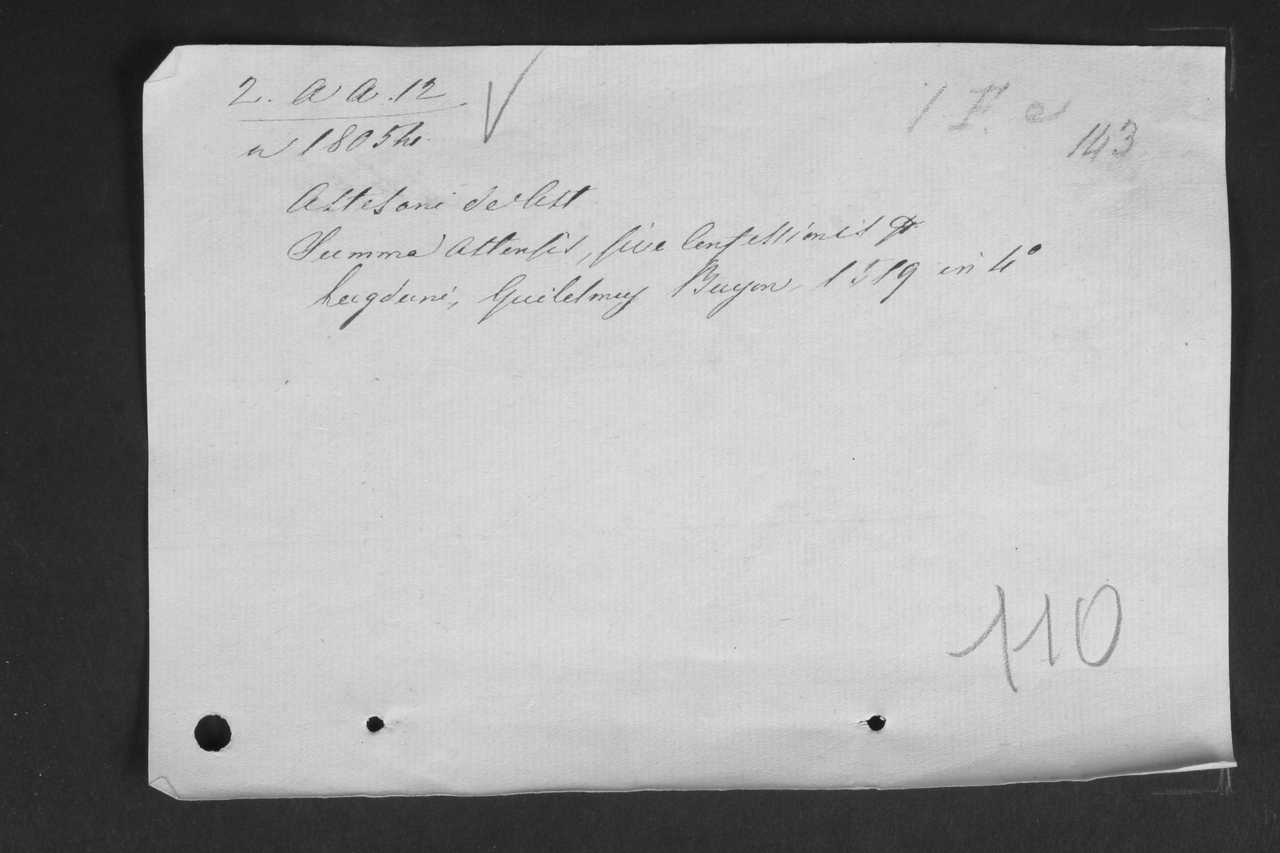 2. a a. 12
n 1805 ht.
1 F. a
143
Astesani de Ast
Summa Astensis, sive Confessionis &
Lugduni, Guilelmus Buyon, 1519 in 4°
110